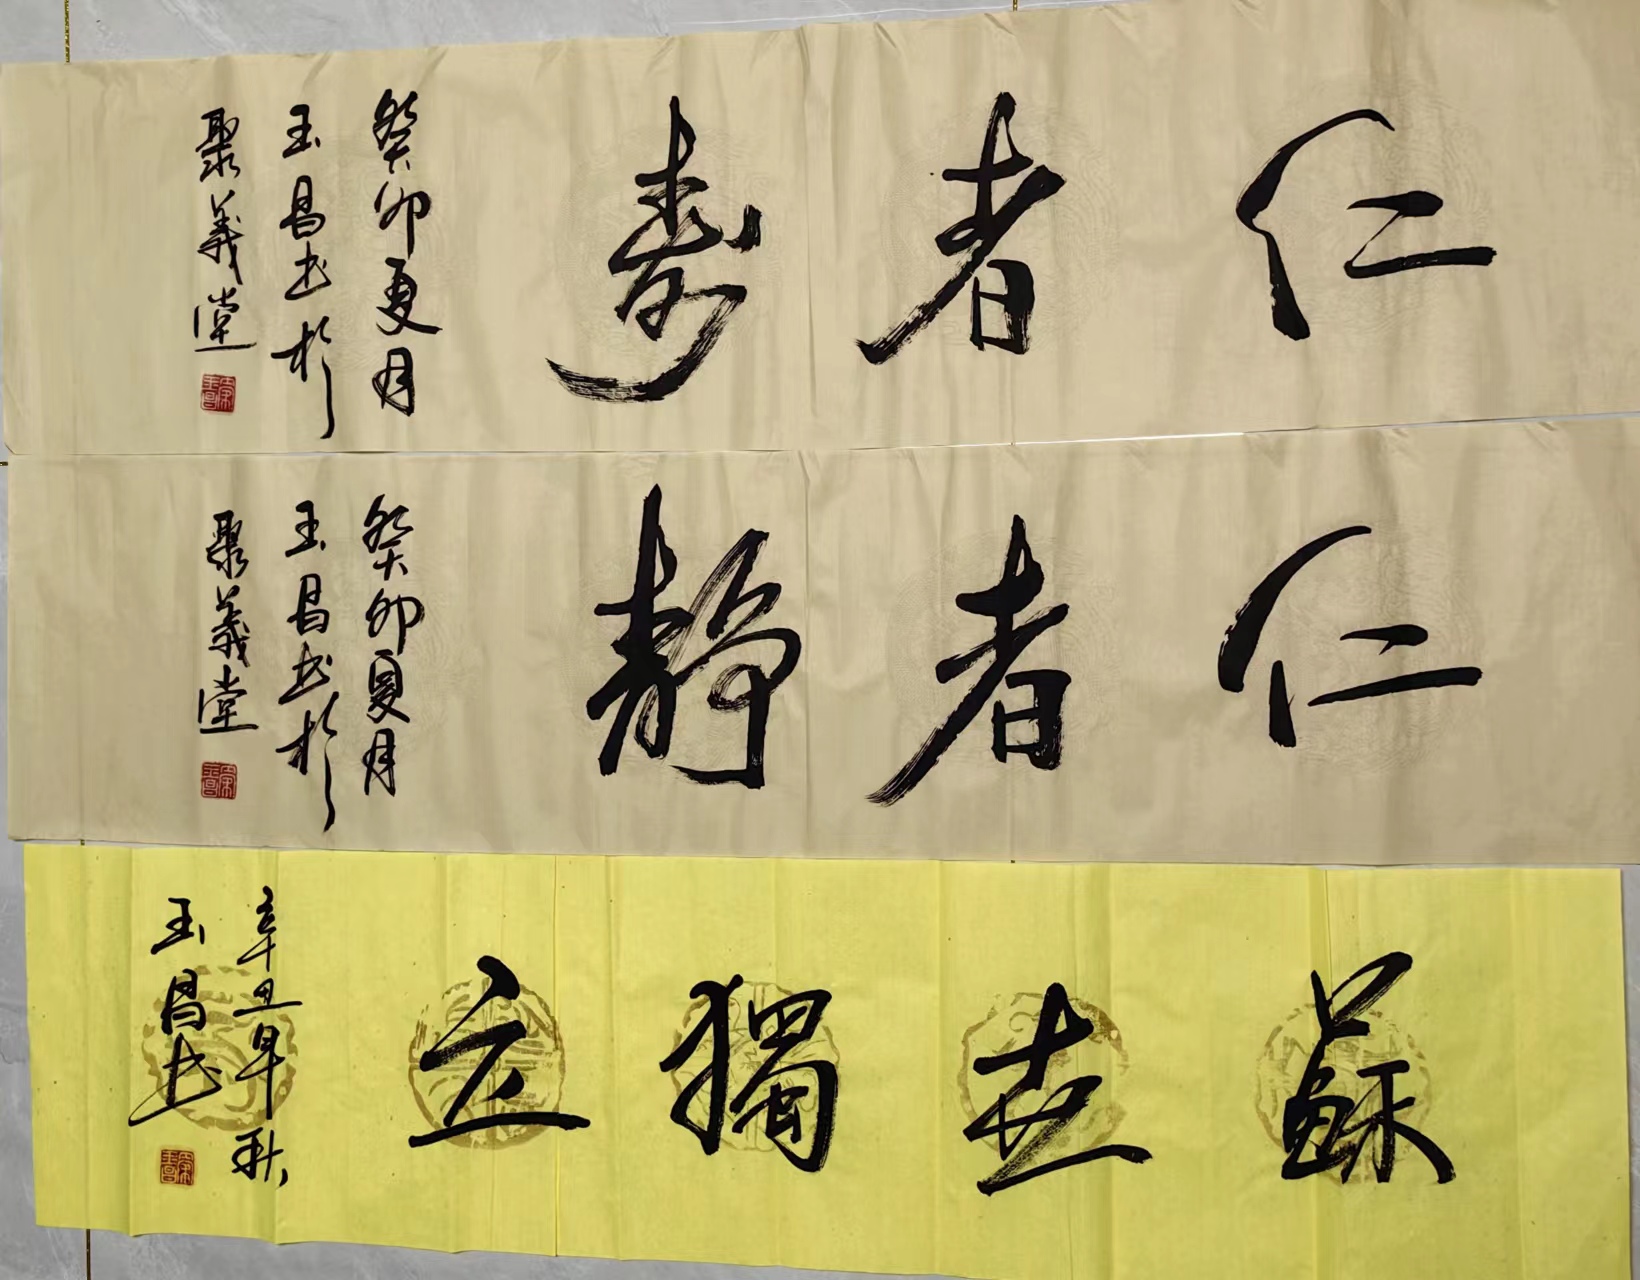 仁者壽
癸卯夏月
玉昌书於
聚義堂
仁者靜
癸卯夏月
玉昌书於
聚義堂
蘇世獨立
辛丑年秋
玉昌书